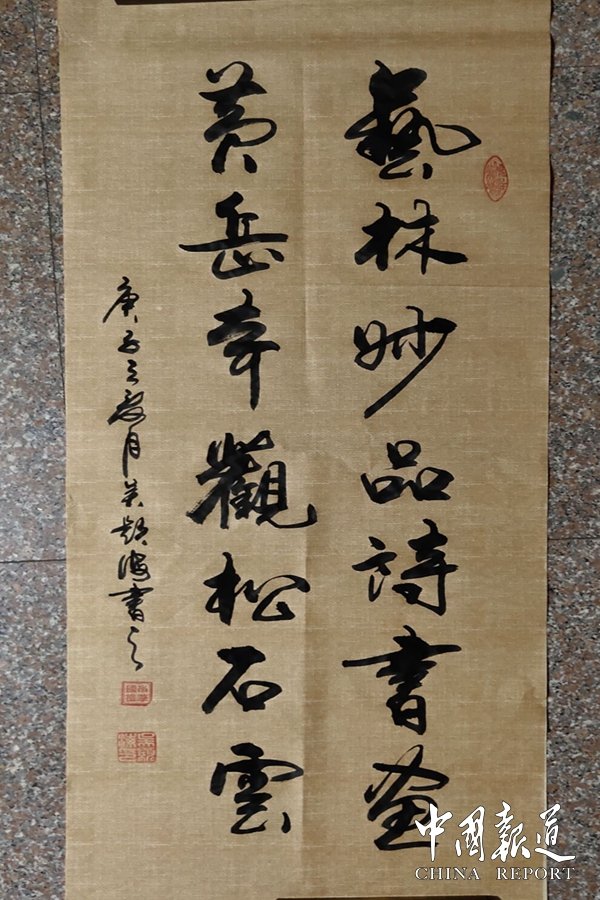 藝林妙品詩書畫
黄岳奇觀松石雲
庚子之夏月吴海書之
中國報道
CHINA REPORT